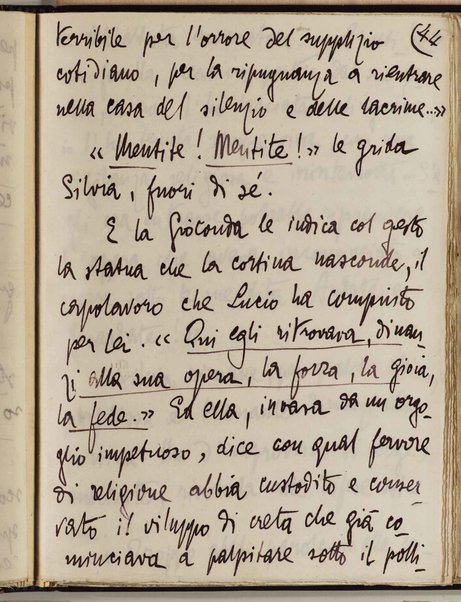 44
terribile per l'orrore del supplizio
cotidiano, per la ripugnanza a rientrare
nella casa del silenzio e delle lacrime...»
« Mentite! Mentite!» le grida
Silvia, fuori di sé.
E la Gioconda le indica col gesto
la statua che la cortina nasconde, il
capolavoro che Lucio ha compiuto
per Lei. « Qui egli ritrovava, dinan-
zi alla sua opera, la forza, la gioia,
la fede.» Ed ella, invasa da un orgo-
glio impetuoso, dice con qual fervore
di religione abbia custodito e conser-
vato il viluppo di creta che già co-
minciava a palpitare sotto il polli-